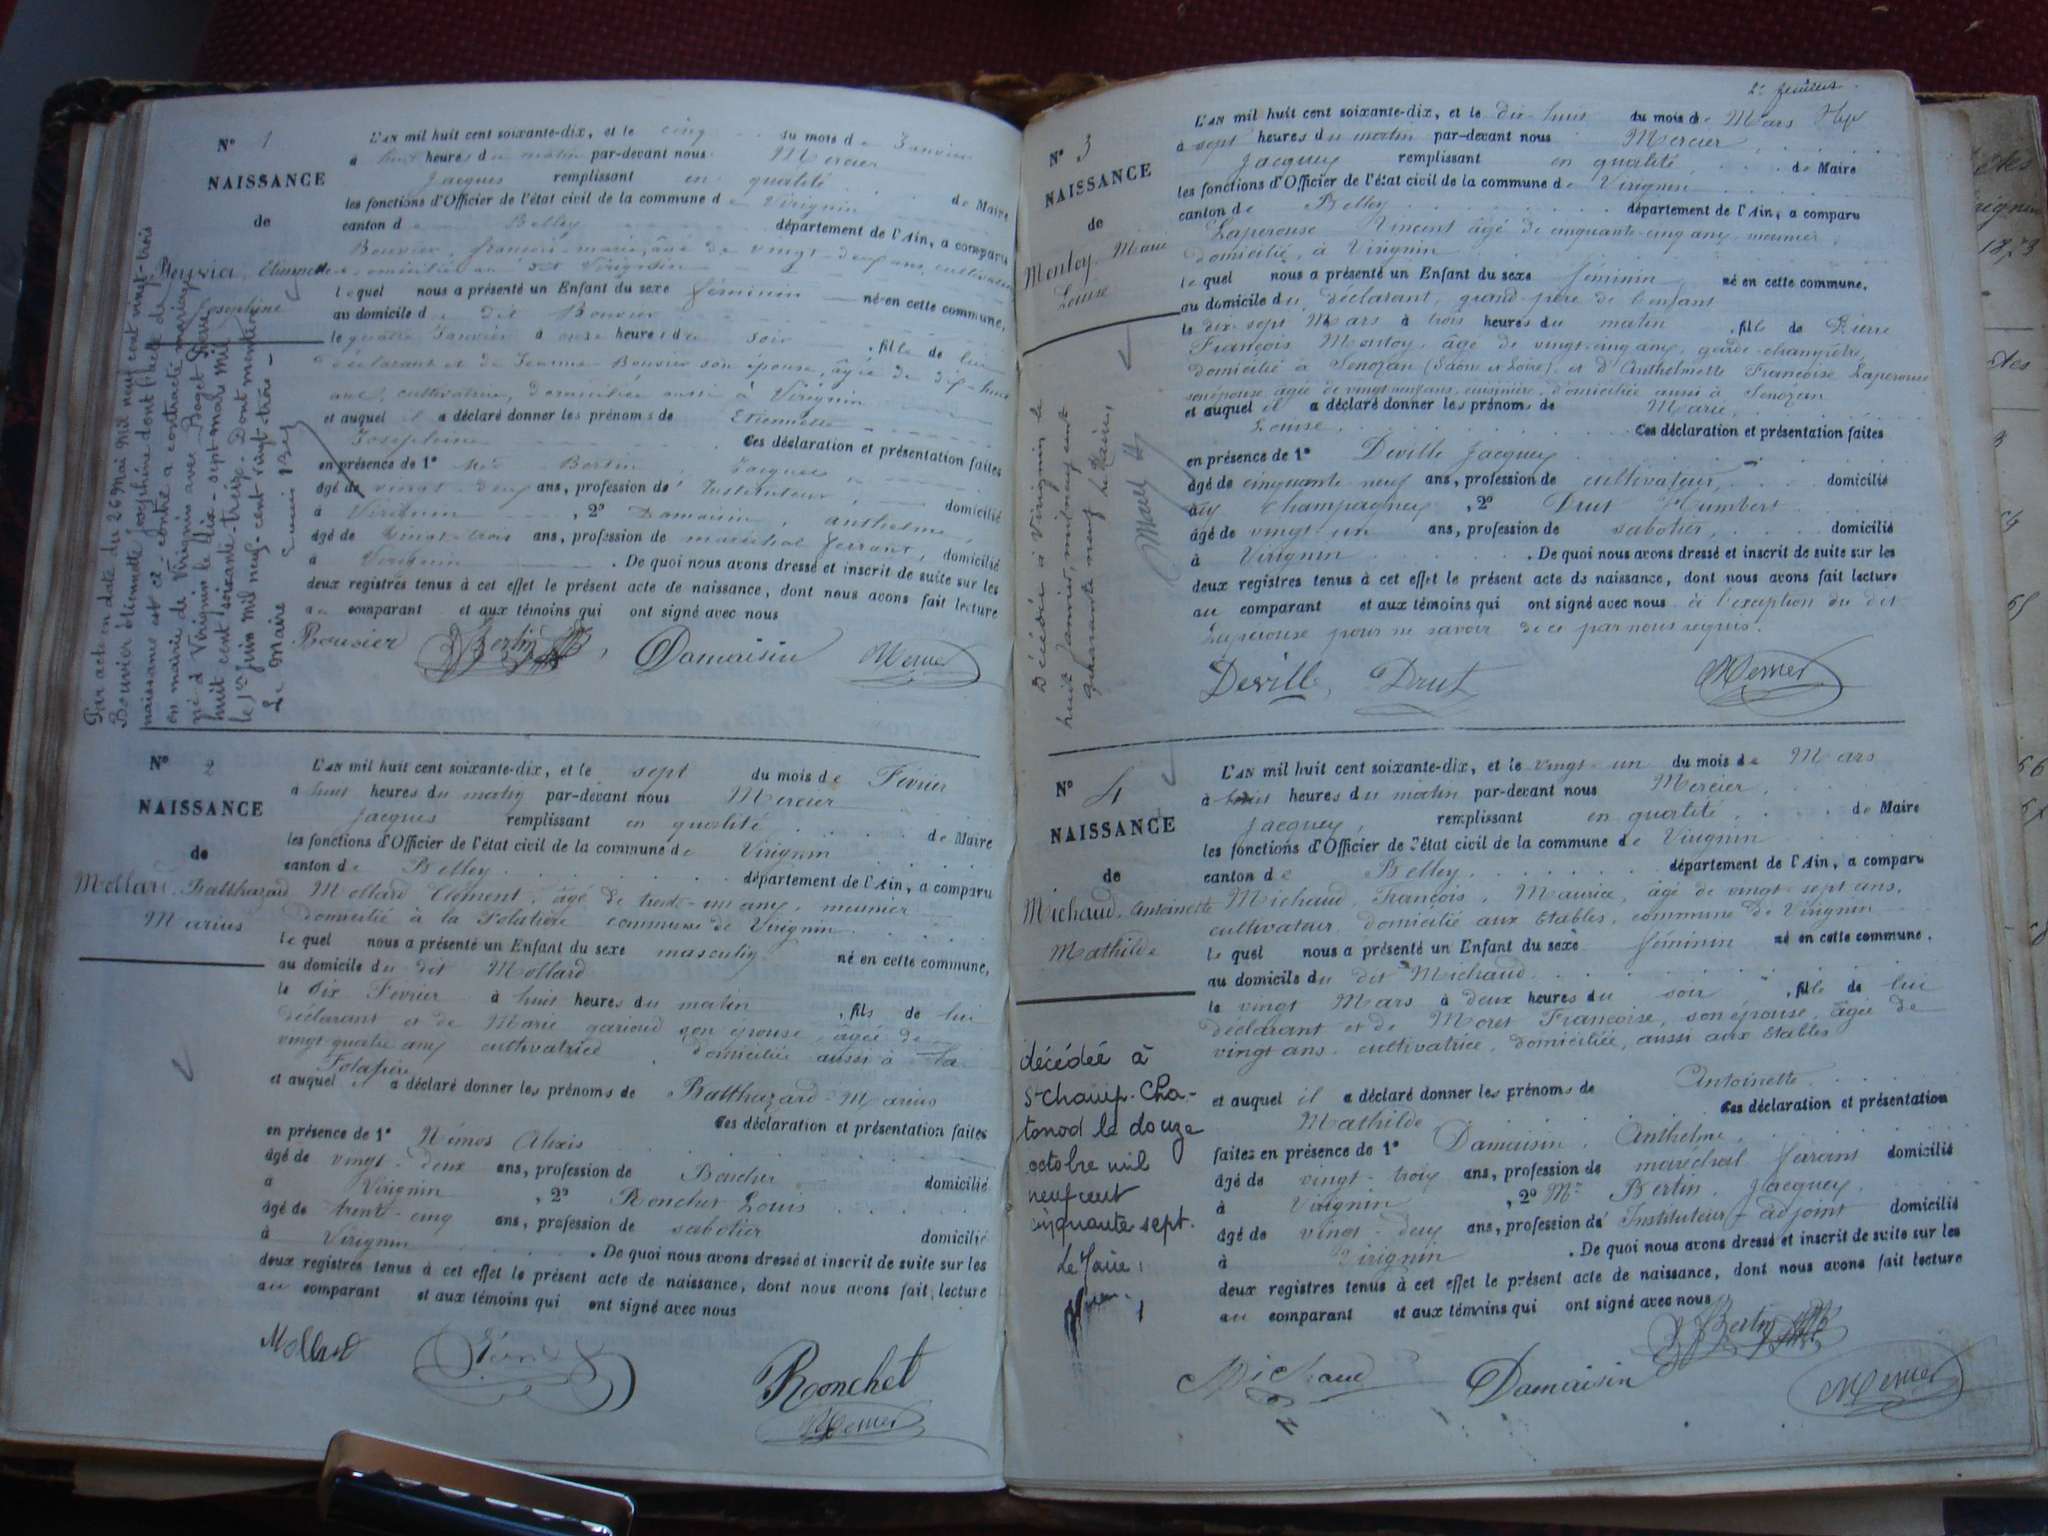 N° 1
NAISSANCE
de
Bouvier, Etiennette
Joséphine
Par acte en date du 26 Mai mil neuf cent vingt-trois
Bouvier étiennette joséphine dont l'acte de
naissance est ci-contre a contracté mariage
en mairie de Virignin avec Boget Pierre
né à Virignin le dix-sept mars mil
huit cent soixante-treize. Dont mention
le 1er juin mil neuf cent vingt-trois -
Le Maire
L'AN mil huit cent soixante-dix, et le cinq du mois de Janvier
à huit heures du matin par-devant nous Mercier
Jacques remplissant en qualité de Maire
les fonctions d'Officier de l'état civil de la commune de Virignin
canton de Belley département de l'Ain, a comparu
Bouvier, françois marie, âgé de vingt-deux ans, cultivateur
domicilié au dit Virignin
lequel nous a présenté un Enfant du sexe féminin né en cette commune,
au domicile de dit Bouvier
le quatre Janvier à onze heures du soir , fille de lui
déclarant et de Jeanne Bouvier son épouse, âgée de dix-huit
ans, cultivateur, domiciliée aussi à Virignin
et auquel il a déclaré donner les prénoms de Etiennette
Joséphine Ces déclaration et présentation faites
en présence de 1° Mr Bertin, Jacques
âgé de vingt-deux ans, profession de Instituteur domicilié
à Virignin , 2° Damaisin, anthelme,
âgé de vingt-trois ans, profession de maréchal ferrant, domicilié
à Virignin . De quoi nous avons dressé et inscrit de suite sur les
deux registres tenus à cet effet le présent acte de naissance, dont nous avons fait lecture
au comparant et aux témoins qui ont signé avec nous
Bouvier Bertin Damaisin Mercier
N° 2
NAISSANCE
de
Mollard, Balthazard
Marius
L'AN mil huit cent soixante-dix, et le sept du mois de Février
à huit heures du matin par-devant nous Mercier
Jacques remplissant en qualité de Maire
les fonctions d'Officier de l'état civil de la commune de Virignin
canton de Belley département de l'Ain, a comparu
Mollard Clément, âgé de trente-un ans, meunier
domicilié à la commune de Virignin
lequel nous a présenté un Enfant du sexe masculin né en cette commune,
au domicile du dit Mollard
le six Février à huit heures du matin , fils de lui
déclarant et de Marie garioud son épouse, âgée de
vingt quatre ans cultivatrice domiciliée aussi à la
et auquel il a déclaré donner les prénoms de Balthazard-Marius
Ces déclaration et présentation faites
en présence de 1° Némos Alexis
âgé de vingt-deux ans, profession de Boucher domicilié
à Virignin , 2° Ronchet Louis
âgé de trente-cinq ans, profession de sabotier domicilié
à Virignin . De quoi nous avons dressé et inscrit de suite sur les
deux registres tenus à cet effet le présent acte de naissance, dont nous avons fait lecture
au comparant et aux témoins qui ont signé avec nous
Mollard Ronchet
Mercier
2e feuillet
N° 3
NAISSANCE
de
Montoy Marie
Louise
Décédée à Virignin le
huit Janvier, mil neuf cent
quarante neuf le Maire,
L'AN mil huit cent soixante-dix, et le dix-huit du mois de Mars
à sept heures du matin par-devant nous Mercier
Jacques remplissant en qualité de Maire
les fonctions d'Officier de l'état civil de la commune de Virignin
canton de Belley département de l'Ain, a comparu
Laperouse Vincent âgé de cinquante-cinq ans, meunier,
domicilié à Virignin
lequel nous a présenté un Enfant du sexe féminin né en cette commune,
au domicile du déclarant, grand-père de l'enfant
le dix-sept Mars à trois heures du matin , fille de Pierre
François Montoy, âgé de vingt-cinq ans, garde-champêtre,
domicilié à Senozan (Saône et Loire), et d'Anthelmette Françoise Laperouse
son épouse âgée de vingt ans, cuisinière, domiciliée aussi à Senozan
et auquel il a déclaré donner les prénoms de Marie,
Louise Ces déclaration et présentation faites
en présence de 1° Deville Jacques
âgé de cinquante neuf ans, profession de cultivateur, domicilié
à Champagney , 2° Drut Humbert
âgé de vingt-un ans, profession de sabotier, domicilié
à Virignin . De quoi nous avons dressé et inscrit de suite sur les
deux registres tenus à cet effet le présent acte de naissance, dont nous avons fait lecture
au comparant et aux témoins qui ont signé avec nous à l'exception du dit
Laperouse pour ne savoir de ce par nous requis.
Deville, Drut Mercier
N° 4
NAISSANCE
de
Michaud, Antoinette
Mathilde
décédée à
St Champ-Cha-
tonod le douze
octobre mil
neuf cent
cinquante sept.
Le Maire,
L'AN mil huit cent soixante-dix, et le vingt-un du mois de Mars
à huit heures du matin par-devant nous Mercier
Jacques, remplissant en qualité de Maire
les fonctions d'Officier de l'état civil de la commune de Virignin
canton de Belley département de l'Ain, a comparu
Michaud, François, Maurice, âgé de vingt-sept ans,
cultivateur, domicilié aux Etables, commune de Virignin
lequel nous a présenté un Enfant du sexe féminin né en cette commune,
au domicile du dit Michaud
le vingt Mars à deux heures du soir , fille de lui
déclarant et de Moret Françoise, son épouse, âgée de
vingt ans, cultivatrice, domiciliée, aussi aux Etables
et auquel il a déclaré donner les prénoms de Antoinette
Mathilde Ces déclaration et présentation
faites en présence de 1° Damaisin, Anthelme,
âgé de vingt-trois ans, profession de maréchal ferrant domicilié
à Virignin , 2° Mr Bertin, Jacques
âgé de vingt-deux ans, profession de Instituteur-adjoint domicilié
à Virignin . De quoi nous avons dressé et inscrit de suite sur les
deux registres tenus à cet effet le présent acte de naissance, dont nous avons fait lecture
au comparant et aux témoins qui ont signé avec nous
Bertin
Michaud Damaisin Mercier